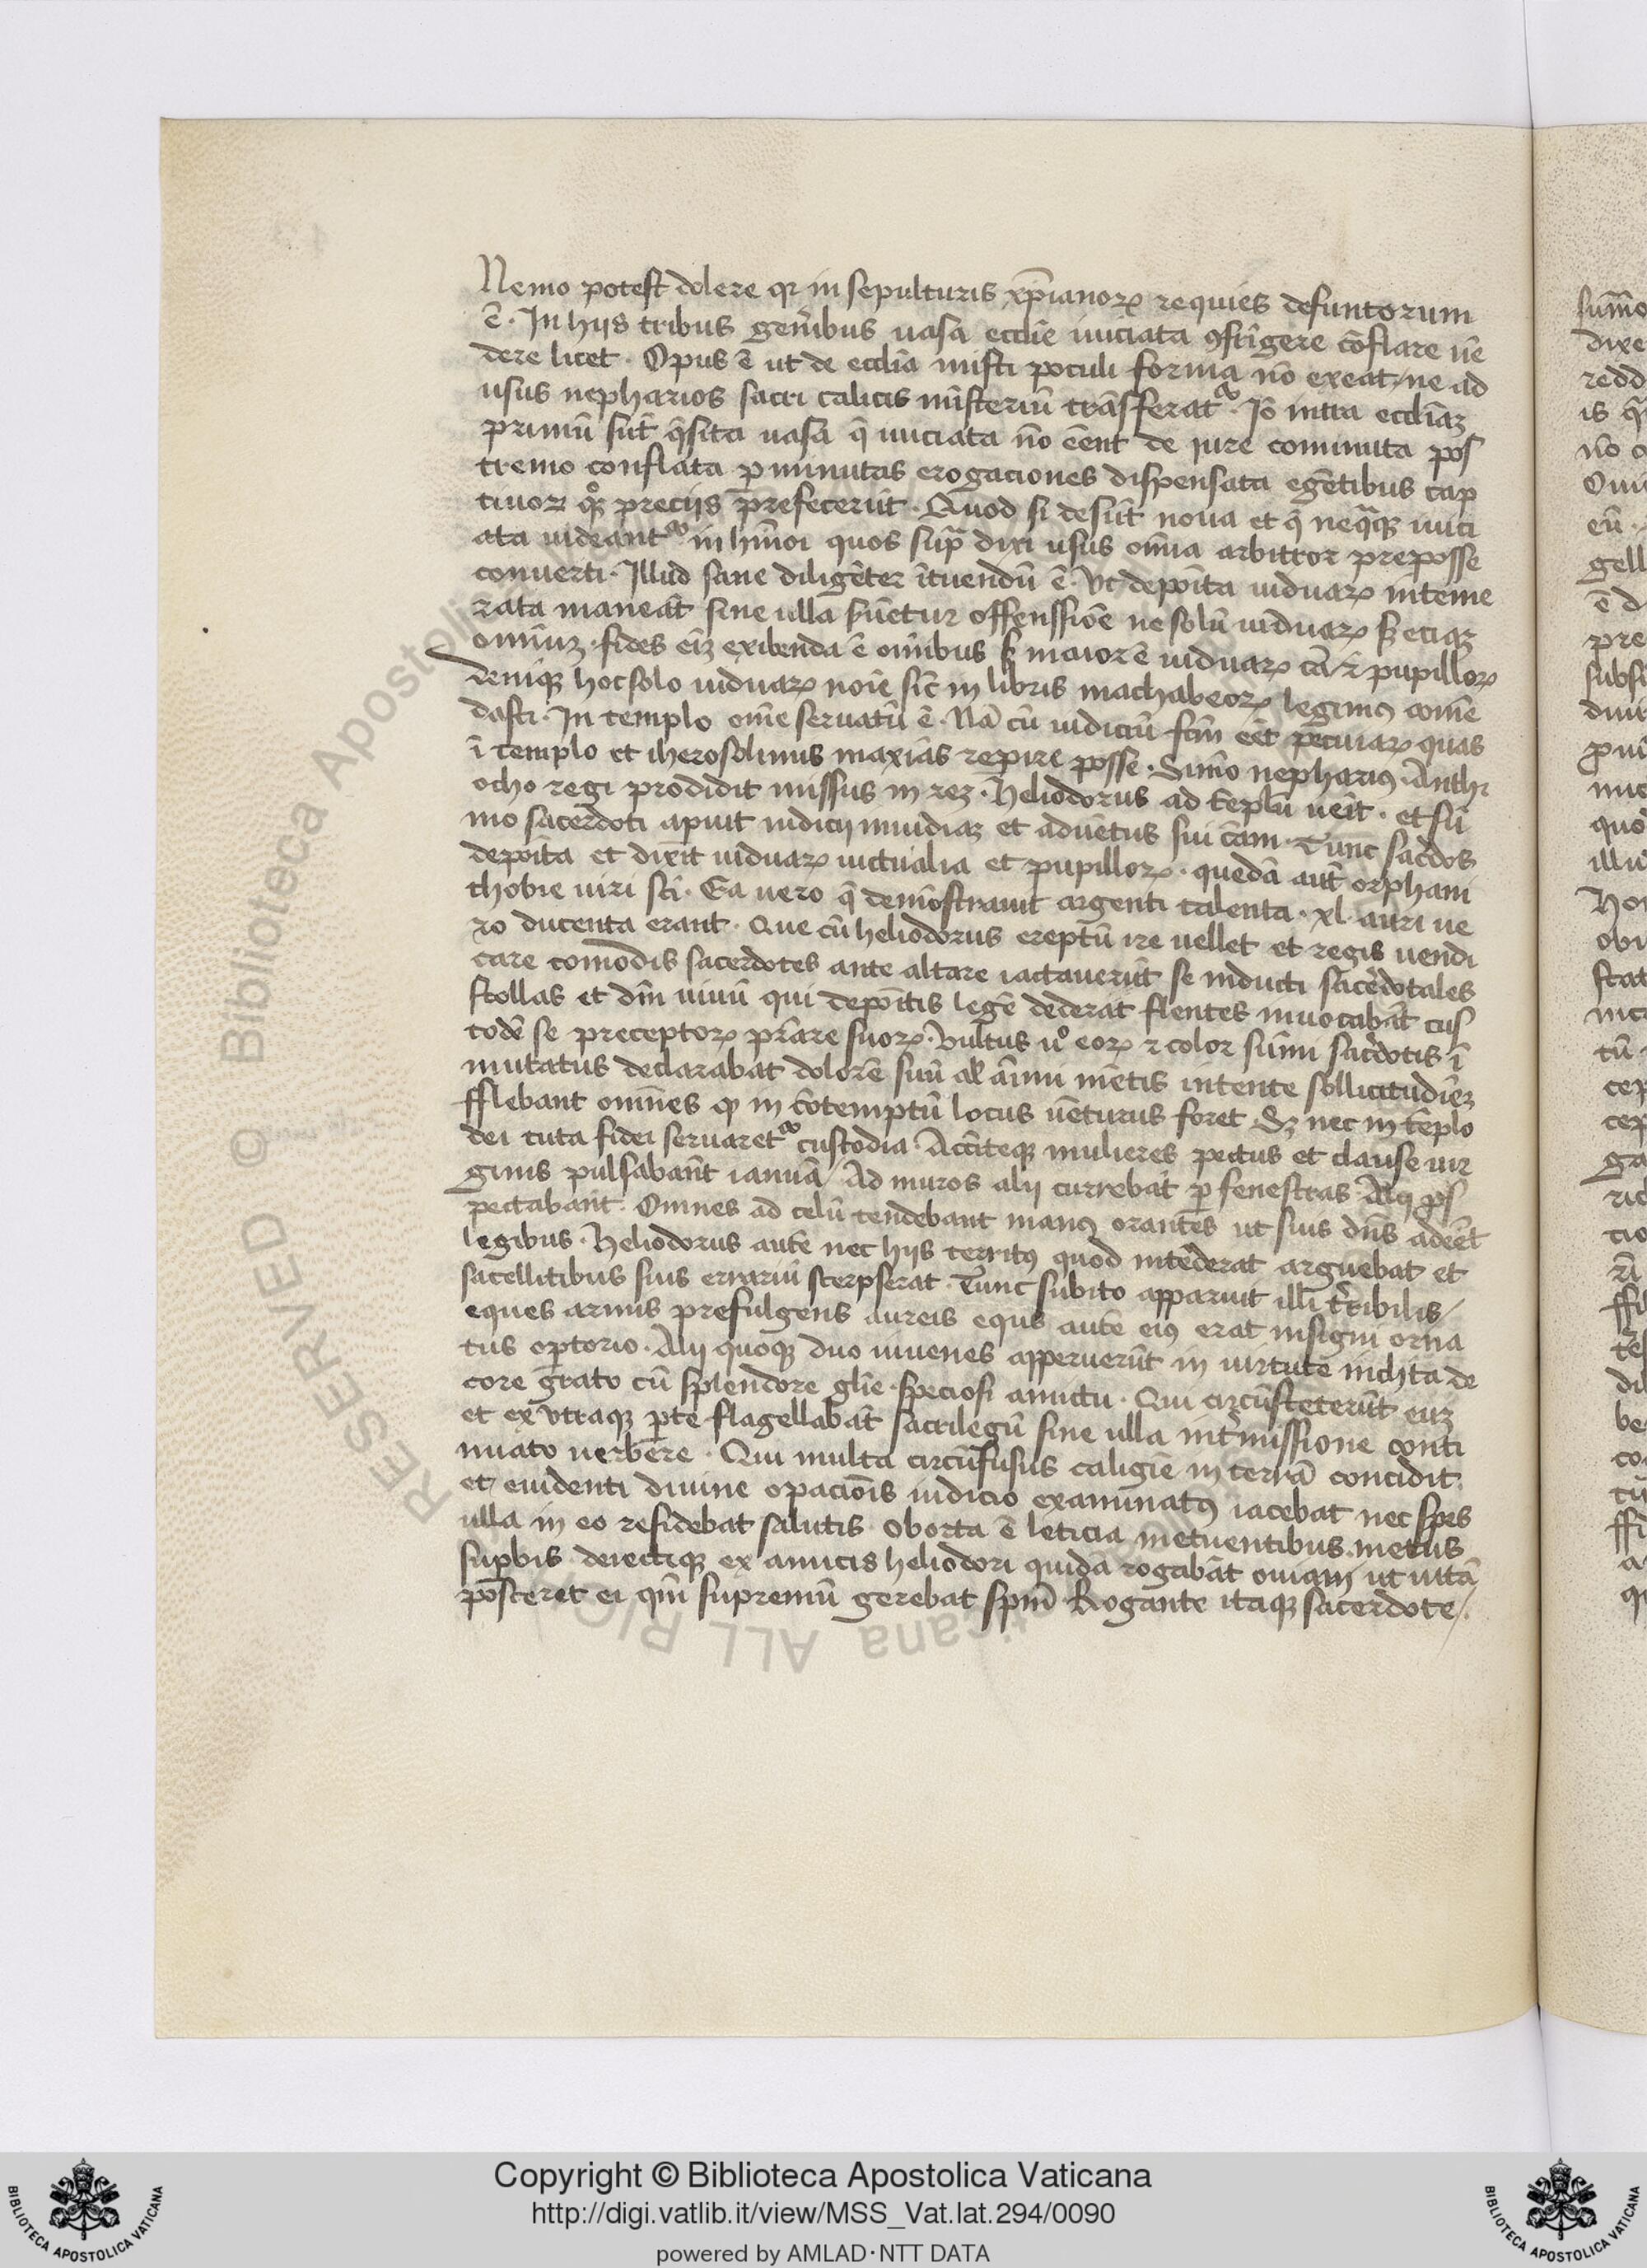 Nemo potest dolere qr in sepulturis xp̄ianoꝝ requies defuntorum
ē · In hijs tribus geñibus uasa ecclīe iniciata ꝯfrīgere cōflare uē
dere licet · Opus ē ut de ecclīa misti poculi forma nō exeat / ne ad
usus nepharios sacri calicis mīsteriū trāsferat᷑ · Iō intra ecclīaꝫ
primū sūt q̄sita uasa q̄ iniciata nō eēnt de iure cominuta pos
tremo conflata p̱ minutas erogaciones dispensata egētibus cap
tiuoꝝ qͦꝫ precijs prefecerūt · Quod si desūt noua et q̄ neqᵃqꝫ inici
ata uideant᷑ in hm̄oi quos supᵃ dixi usus om̄ia arbitror preposse
conuerti · Illud sane diligēter ītuendū ē · Ut depoīta uiduaꝝ inteme
rata maneāt sine ulla ẜuētur offenssiōe ne solū uiduaꝝ ẜꝫ eciaꝫ
om̄iuꝫ · fides eīꝫ exibenda ē om̄ibus ẜꝫ maior ē uiduaꝝ cā ⁊ pupilloꝝ
Deniqꝫ hoc solo uiduaꝝ noīe sic̄ in libris machabeoꝝ legimꝰ comē
dasti · In templo om̄e seruatū ē · Nā cū iudiciū fc̄m eēt pecuiaꝝ quas
ī templo et iherosolimis maxīas repire posse · Simō nephariꝰ · Anthi
ocho regi prodidit missus in reꝫ · Heliodorus ad tēplū uēit · et sū
mo sacerdoti apuit iudicij inuidiaꝫ et aduētus sui cām · Tunc sac̄dos
depoīta et dixit uiduaꝝ uictualia et pupilloꝝ · quedā aūt orphani
thobie uiri sc̄i · Ea uero q̄ demōstrauit argenti talenta · xl · auri ue
ro ducenta erant · Que cū heliodorus ereptū ire uellet et regis uendi
care comodis sacerdotes ante altare iactauerūt se inducti sacerdotales
stollas et dīm uiuū qui depoītis legē dederat flentes inuocabāt cus
todē se preceptoꝝ prāre suoꝝ · Uultus uͦ eoꝝ ⁊ color sūmi sac̄dotis ī
mutatus declarabat dolorē suū aī mētis intente sollicitudīeꝫ
fflebant om̄nes ꝙ in cōtemptū locus uēturus foret · Sꝫ nec in tēplo
dei tuta fidei seruaret᷑ custodia · Accīteqꝫ mulieres pectus et clause uir
ginis pulsabānt ianuā / Ad muros alij currebāt p̱ fenestras Alij ꝓs
pectabānt · Omnes ad celū tendebant manꝰ orantes ut suis dn̄s adeēt
legibus · Heliodorus autē nec hijs territꝰ quod intēderat arguebat et
satellitibus suis errariū sterpserat · Tunc subito apparuit illi t̄ribilis /
eques armis prefulgens aureis equs autē eiꝰ erat insigni orna
tus optorio · Alij quoqꝫ duo iuuenes apperuerūt in uirtute inclita de
core grato cū splendore glīe · speciosi amictu · Qui circūsteterūt euꝫ
et ex utraqꝫ p̱te flagellabāt sacrilegū sine ulla int̄missione conti
nuato uerbere · Qui multa circūfusus caligīe in terrā concidit
et euidenti diuine opacioīs iudicio examinatꝰ iacebat nec spes
ulla in eo residebat salutis · Oborta ē leticia metuentibus · metus
suꝑbis deiectiqꝫ ex amicis heliodori quidā rogabāt oniam ut uitā
posceret ei qm̄ supremū gerebat spm̄ · Rogante itaqꝫ sacerdote /
Copyright © Biblioteca Apostolica Vaticana
http://digi.vatlib.it/view/MSS_Vat.lat.294/0090
powered by AMLAD·NTT DATA